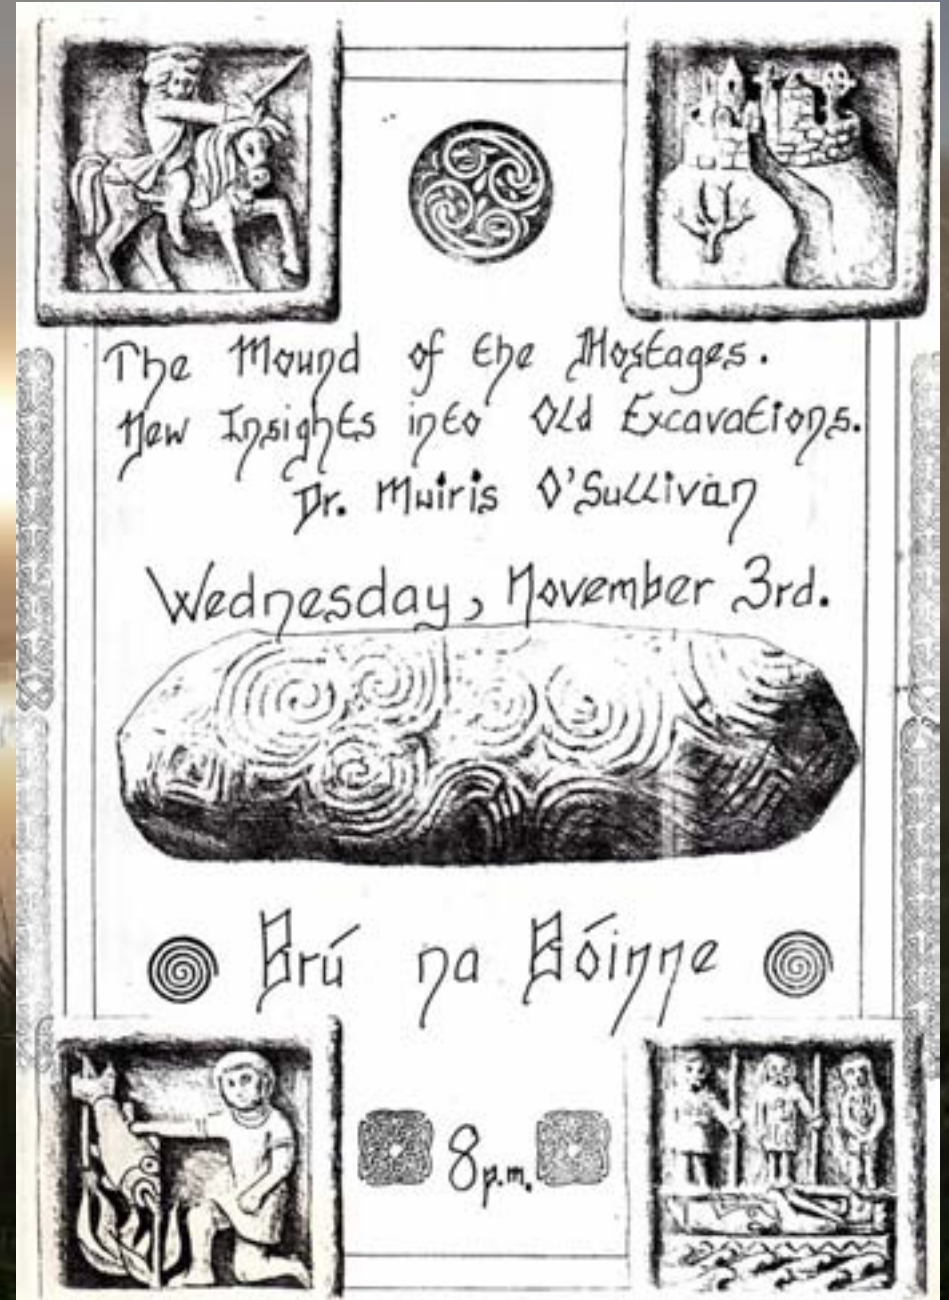 The Mound of the Hostages.
New Insights into Old Excavations.
Dr. Muiris O'Sullivan
Wednesday, November 3rd.
Brú na Bóinne
8 p.m.